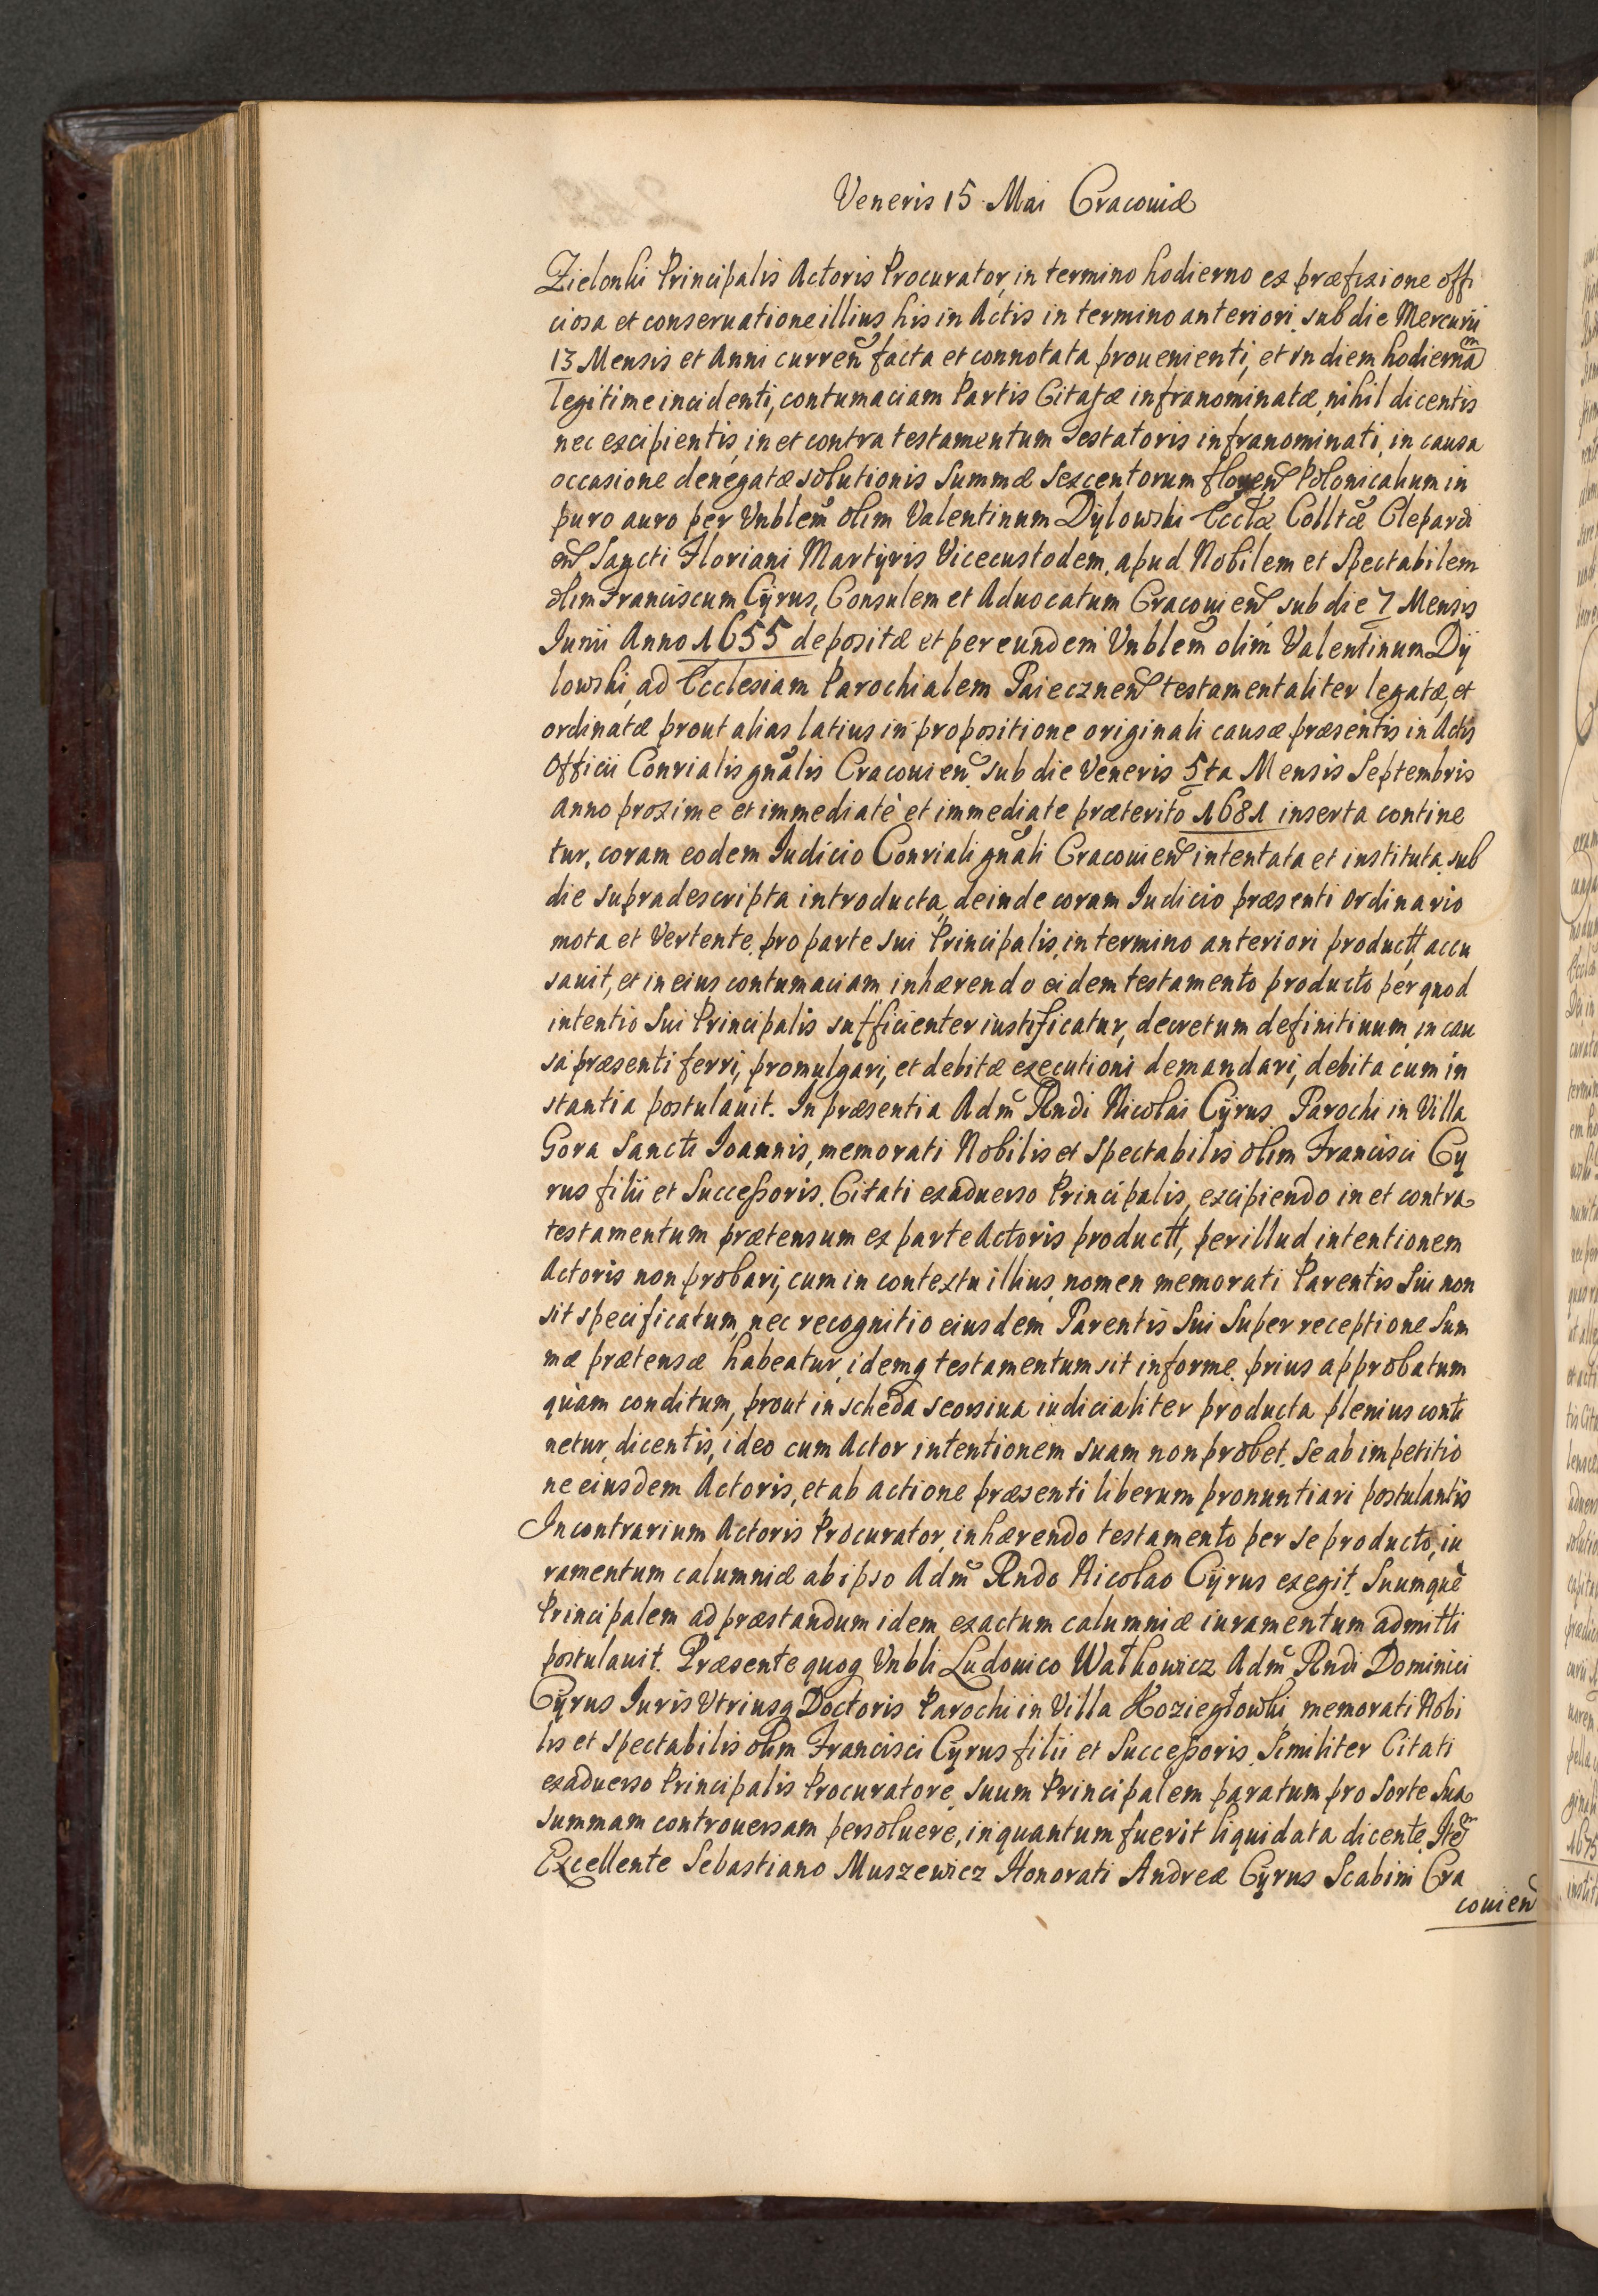 Veneris 15 Mai Cracouiæ
Zielonki Principalis Actoris Procurator, in termino hodierno ex præfixione offi
ciosa et conseruatione illius his in Actis in termino anteriori sub die Mercurii
13 Mensis et Anni curren facta et connotata prouenienti, et in diem hodiernam
legitime incidenti, contumaciam Partis Citatæ infranominatæ, nihil dicentis
nec excipientis, in et contra testamentum Testatoris infranominati, in causa
occasione denegatæ solutionis Summæ Sexcentorum floren Polonicalium in
puro auro per Vnblem olim Valentinum Dÿlowski Eccłæ Colltæ Clepardi
en Sancti Floriani Martÿris Vicecustodem, apud Nobilem et Spectabilem
olim Franciscum Cÿrus, Consulem et Aduocatum Cracouien sub die 7 Mensis
Iunii Anno 1655 depositæ et per eundem Vnblem olim Valentinum Dÿ
lowski, ad Ecclesiam Parochialem Paiecznen testamentaliter legatæ, et
ordinatæ prout alias latius in propositione originali causæ præsentis in Actis
Officii Conrialis gnalis Cracouien sub die Veneris 5ta Mensis Septembris
Anno proxime et immediatè et immediate præterito 1681 inserta contine
tur, coram eodem Iudicio Conriali gnali Cracouien intentata et instituta, sub
die supradescripta introducta, deinde coram Iudicio præsenti ordinario
mota et Vertente, pro parte sui Principalis, in termino anteriori productt accu
sauit, et in eius contumaciam inhærendo eidem testamento producto per quod
intentio Sui Principalis sufficienter iustificatur, decretum definitiuum, in cau
sa præsenti ferri, promulgari, et debitæ executioni demandari, debita cum in
stantia postulauit. In præsentia Adm Rndi Nicolai Cÿrus Parochi in Villa
Gora Sancti Ioannis, memorati Nobilis et Spectabilis olim Francisci Cy
rus filii et Successoris. Citati exaduerso Principalis, excipiendo in et contra
testamentum prætensum ex parte Actoris productt, per illud intentionem
Actoris non probari, cum in contextu illius nomen memorati Parentis Sui non
sit specificatum, nec recognitio eiusdem Parentis Sui Super receptione Sum
mæ prætensæ habeatur, idemq testamentum sit informe, prius approbatum
quàm conditum, prout in scheda seorsiua iudicialiter producta plenius conti
netur, dicentis, ideo cum Actor intentionem suam non probet, Se ab impetitio
ne eiusdem Actoris, et ab actione præsenti liberum pronuntiari postulantis
In contrarium Actoris Procurator, inhærendo testamento per se producto, iu
ramentum calumniæ ab ipso Adm Rndo Nicolao Cÿrus exegit, Suumquè
Principalem ad præstandum idem exactum calumniæ iuramentum admitti
postulauit. Præsente quoq Vnbli Ludouico Wałkowicz Adm Rndi Dominici
Cÿrus Iuris Vtriusq Doctoris Parochi in Villa Koziegłowki memorati Nobi
lis et Spectabilis olim Francisci Cyrus filii et Successoris. Similiter Citati
exaduerso Principalis Procuratore, suum Principalem paratum pro Sorte Sua
summam controuersam persoluere, inquantum fuerit liquidata dicente, Item
Excellente Sebastiano Muszewicz Honorati Andreæ Cÿrus Scabini Cra
couien